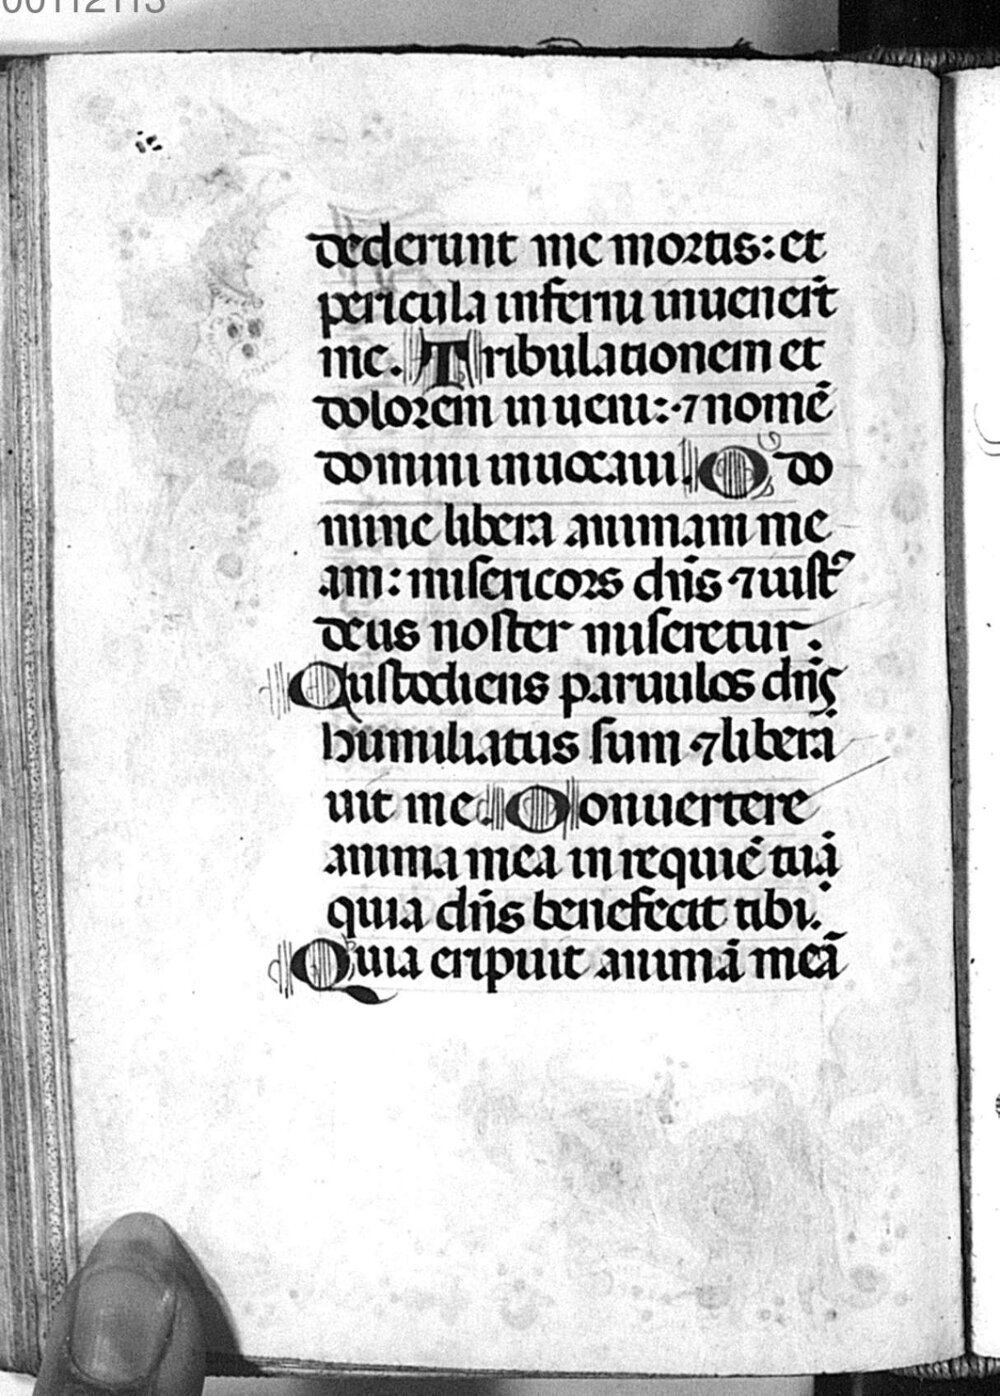 00112113
dederunt me mortis: et
pericula inferni inuenerūt
me. Tribulationem et
dolorem inueni: ⁊ nomē
domini inuocaui. O do
mine libera animam me
am: misericors dn̄s ⁊ iust᷒
deus noster miseretur.
Custodiens paruulos dn̄s
humiliatus sum ⁊ libera
uit me. Conuertere
anima mea in requiē tuā
quia dn̄s benefecit tibi.
Quia eripuit animā meā